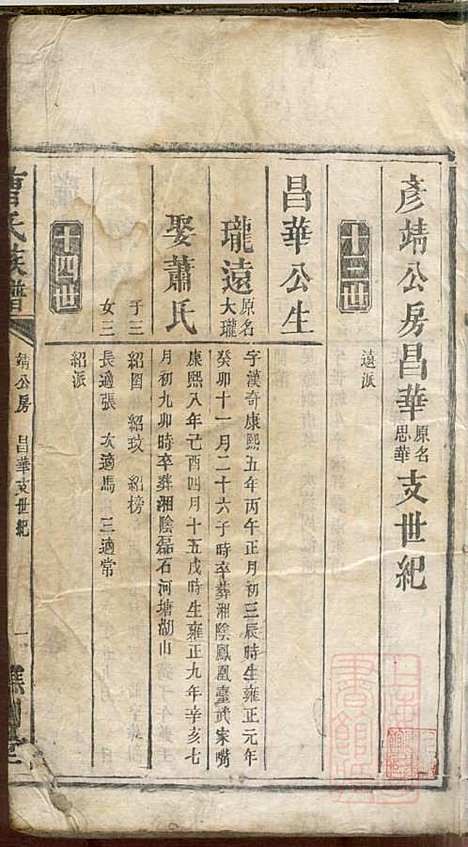 彥靖公房昌華原名思華支世紀
十三世
遠派
昌華公生
瓏遠原名大瓏
字漢奇康熙五年丙午正月初三辰時生雍正元年
癸卯十一月二十六子時卒葬湘陰鳳凰臺武宋嘴
娶蕭氏
康熙八年己酉四月十五戌時生雍正九年辛亥七
月初九卯時卒葬湘陰磊石河塘湖山
子三
紹圀 紹玟 紹榜
女三
長適張 次適馬 三適常
十四世
紹派
曹氏族譜
靖公房 昌華支世紀
一